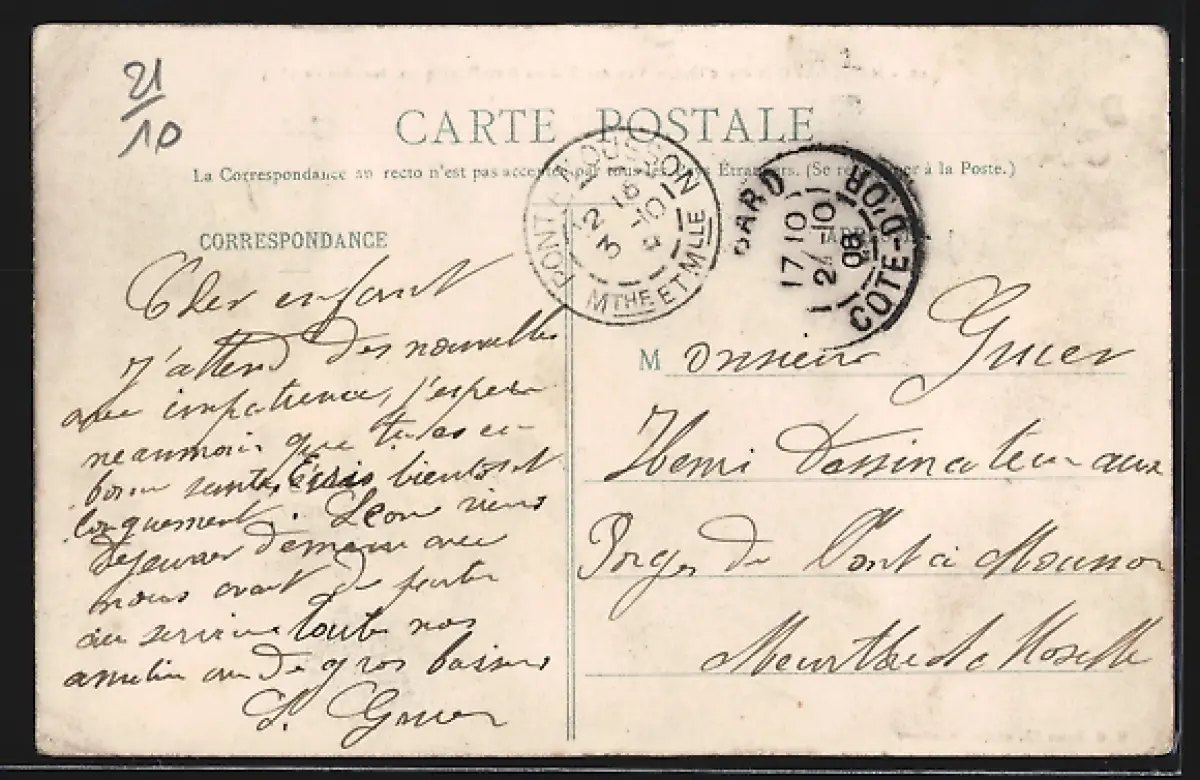 21
10
CARTE POSTALE
La Correspondance au recto n'est pas acceptée par tous les Pays Étrangers. (Se renseigner à la Poste.)
PONT-A-MOUSSON
MTHE ET MLLE
12 16
3 -10
CÔTE-D'OR
17 10
12 -10
08
CORRESPONDANCE
Cher enfant
J'attend des nouvelles
avec impatience, j'espère
neanmoin que tu es en
bonne santé, Ecris bientot et
longuement. Leon viens
dejeuner demain avec
nous avant de partir
au service toute nos
de gros baisers
Monsieur
Henri Dessinateur aux
Forges de Pont à Mousson
Meurthe et Moselle